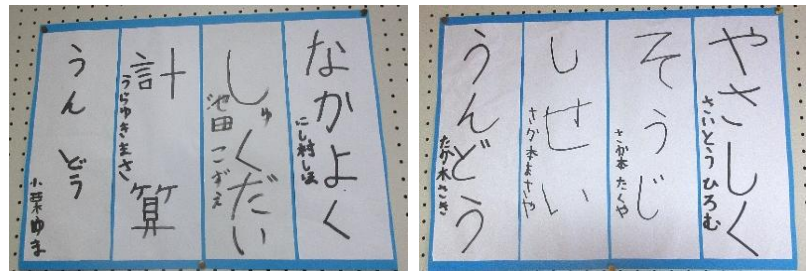 なかよく
にし村しほ
しゅくだい
池田こずえ
計算
うらゆきまさ
うんどう
小栗ゆま
やさしく
さいとうひろむ
そうじ
さか本たくや
しせい
さか本まさや
うんどう
たか木さき